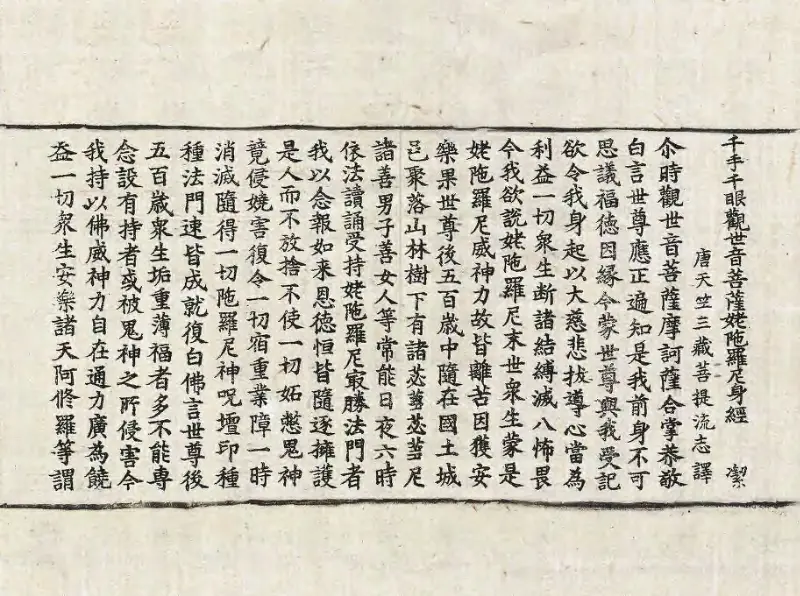 千手千眼觀世音菩薩姥陁羅尼身經 潔
唐天竺三藏菩提流志譯
尒時觀世音菩薩摩訶薩合掌恭敬
白言世尊應正遍知是我前身不可
思議福德因緣今蒙世尊與我受記
欲令我身起以大慈悲拔導心當為
利益一切衆生断諸結縛滅八怖畏
今我欲說姥陁羅尼末世衆生蒙是
姥陁羅尼威神力故皆離苦因獲安
樂果世尊後五百歳中隨在國土城
邑聚落山林樹下有諸苾蒭苾蒭尼
諸善男子善女人等常能日夜六時
依法讀誦受持姥陁羅尼㝡勝法門者
我以念報如来恩德恒皆隨逐擁護
是人而不放捨不使一切妬憋鬼神
竟侵嬈害復令一切宿重業障一時
消滅隨得一切陁羅尼神呪壇印種
種法門速皆成就復白佛言世尊後
五百歳衆生垢重薄福者多不能專
念設有持者或被鬼神之所侵害今
我持以佛威神力自在通力廣為饒
益一切衆生安樂諸天阿脩羅等謂